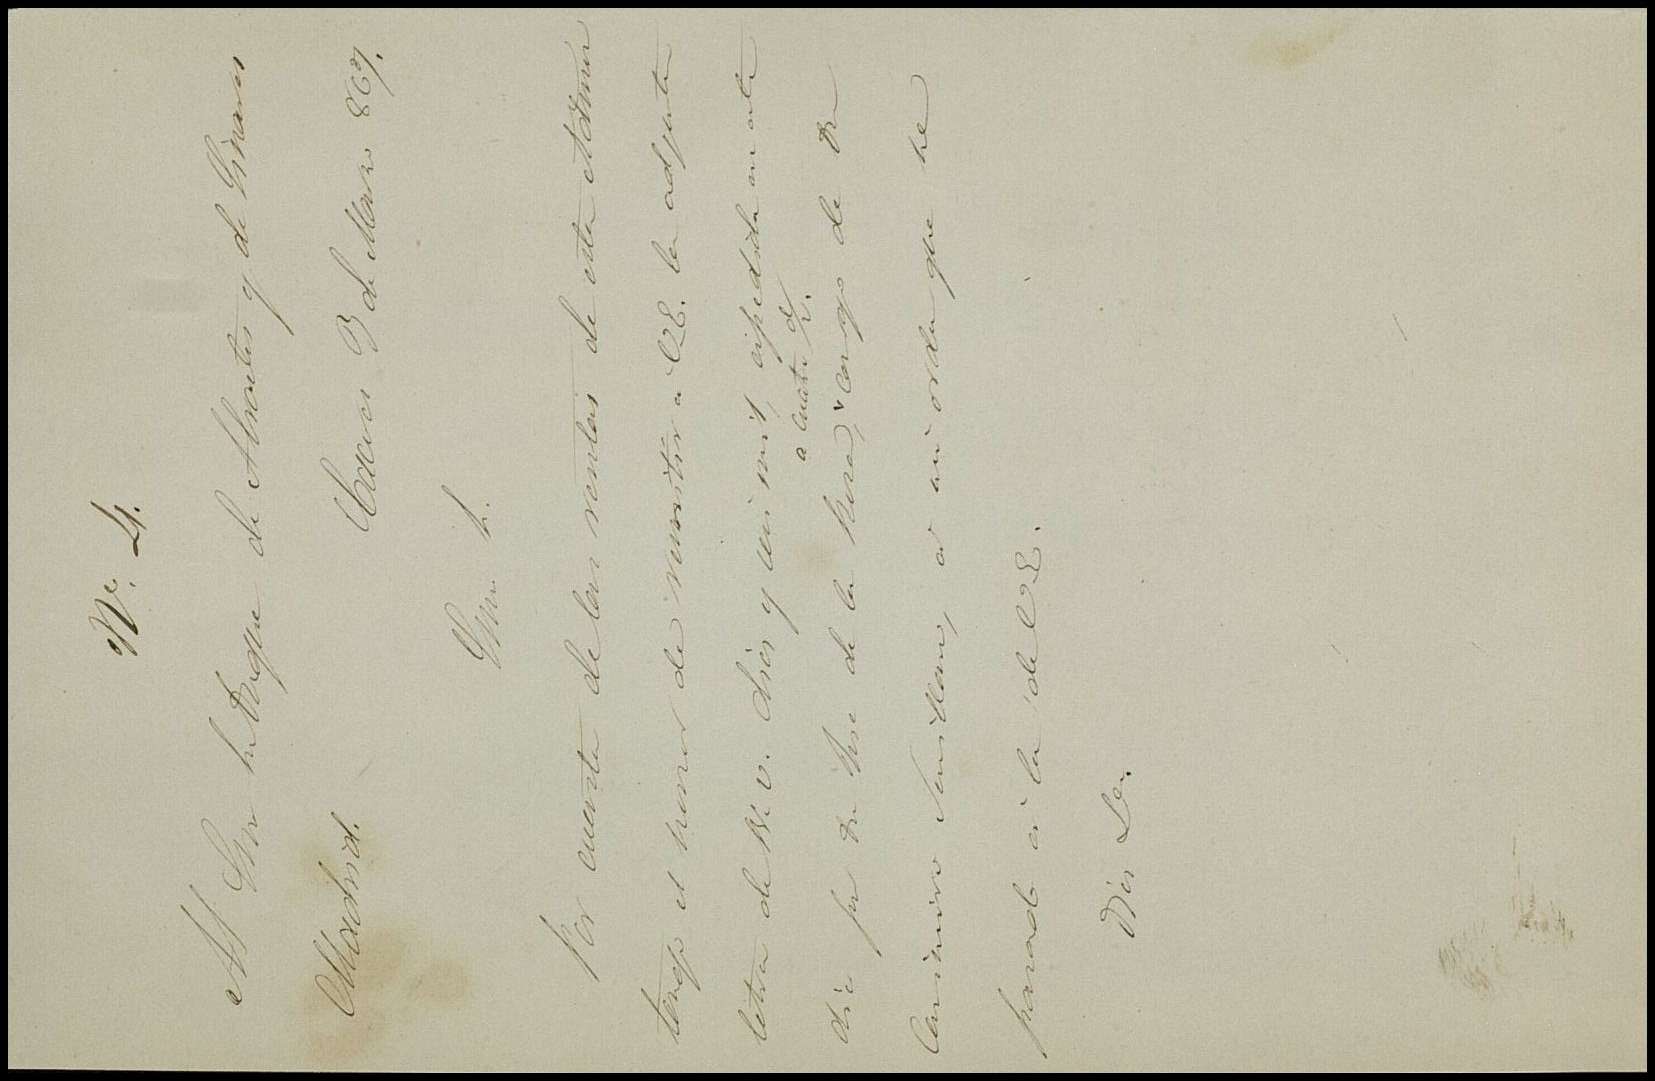 Nº. 4.
Al Exmo Sr Duque de Abrantes y de Linares
Madrid. Caceres 3 de Marzo 867.
Exmo Sr.
Por cuenta de las rentas de esta Admon
tengo el honor de remitir a V.E. la adjunta
letra de Rs. v. dies y seis mil, expedida en este
dia por Dn Jose de la Riva, a cuatro d/v. cargo de Dn
Casimiro, a mi orden que he
pasado á la de V.E.
Dios &a.